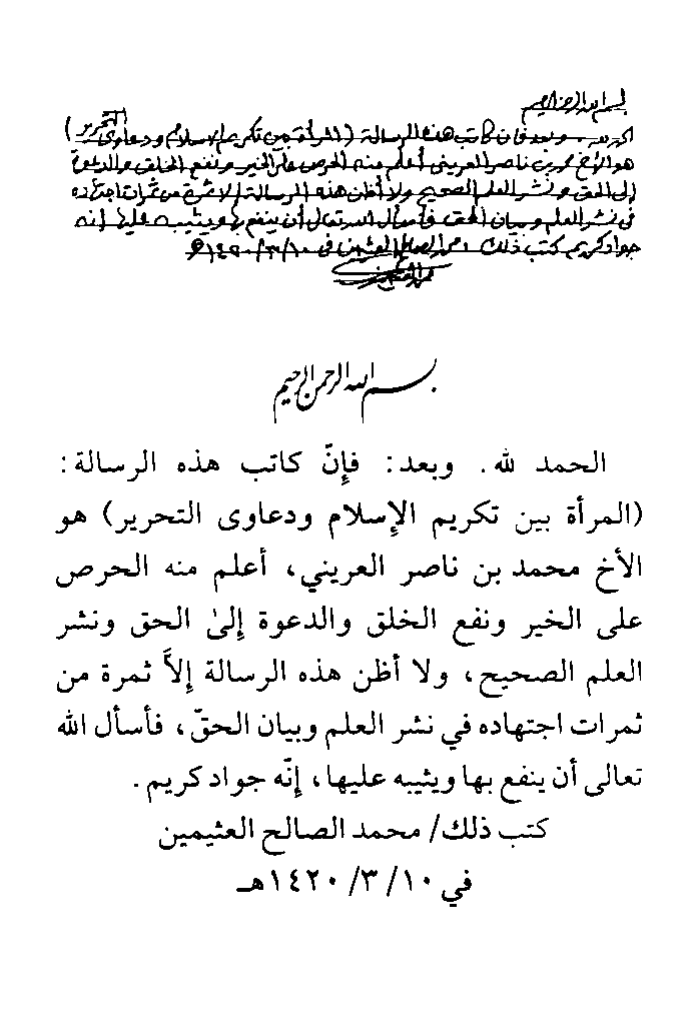 بسم الله الرحمن الرحيم
الحمد لله. وبعد فإن كاتب هذه الرسالة (المرأة بين تكريم الإسلام ودعاوى التحرير)
هو الأخ محمد بن ناصر العريني أعلم منه الحرص على الخير ونفع الخلق والدعوة
إلى الحق ونشر العلم الصحيح ولا أظن هذه الرسالة إلا ثمرة من ثمرات اجتهاده
في نشر العلم وبيان الحق فأسأل الله تعالى أن ينفع بها ويثيبه عليها إنه
جواد كريم كتب ذلك محمد الصالح العثيمين في ١٠/ ٣/ ١٤٢٠هـ
بسم الله الرحمن الرحيم
الحمد لله. وبعد: فإنّ كاتب هذه الرسالة:
(المرأة بين تكريم الإسلام ودعاوى التحرير) هو
الأخ محمد بن ناصر العريني، أعلم منه الحرص
على الخير ونفع الخلق والدعوة إلىٰ الحق ونشر
العلم الصحيح، ولا أظن هذه الرسالة إلاَّ ثمرة من
ثمرات اجتهاده في نشر العلم وبيان الحقّ، فأسأل الله
تعالى أن ينفع بها ويثيبه عليها، إنّه جواد كريم.
كتب ذلك/ محمد الصالح العثيمين
في ١٠/ ٣/ ١٤٢٠هـ